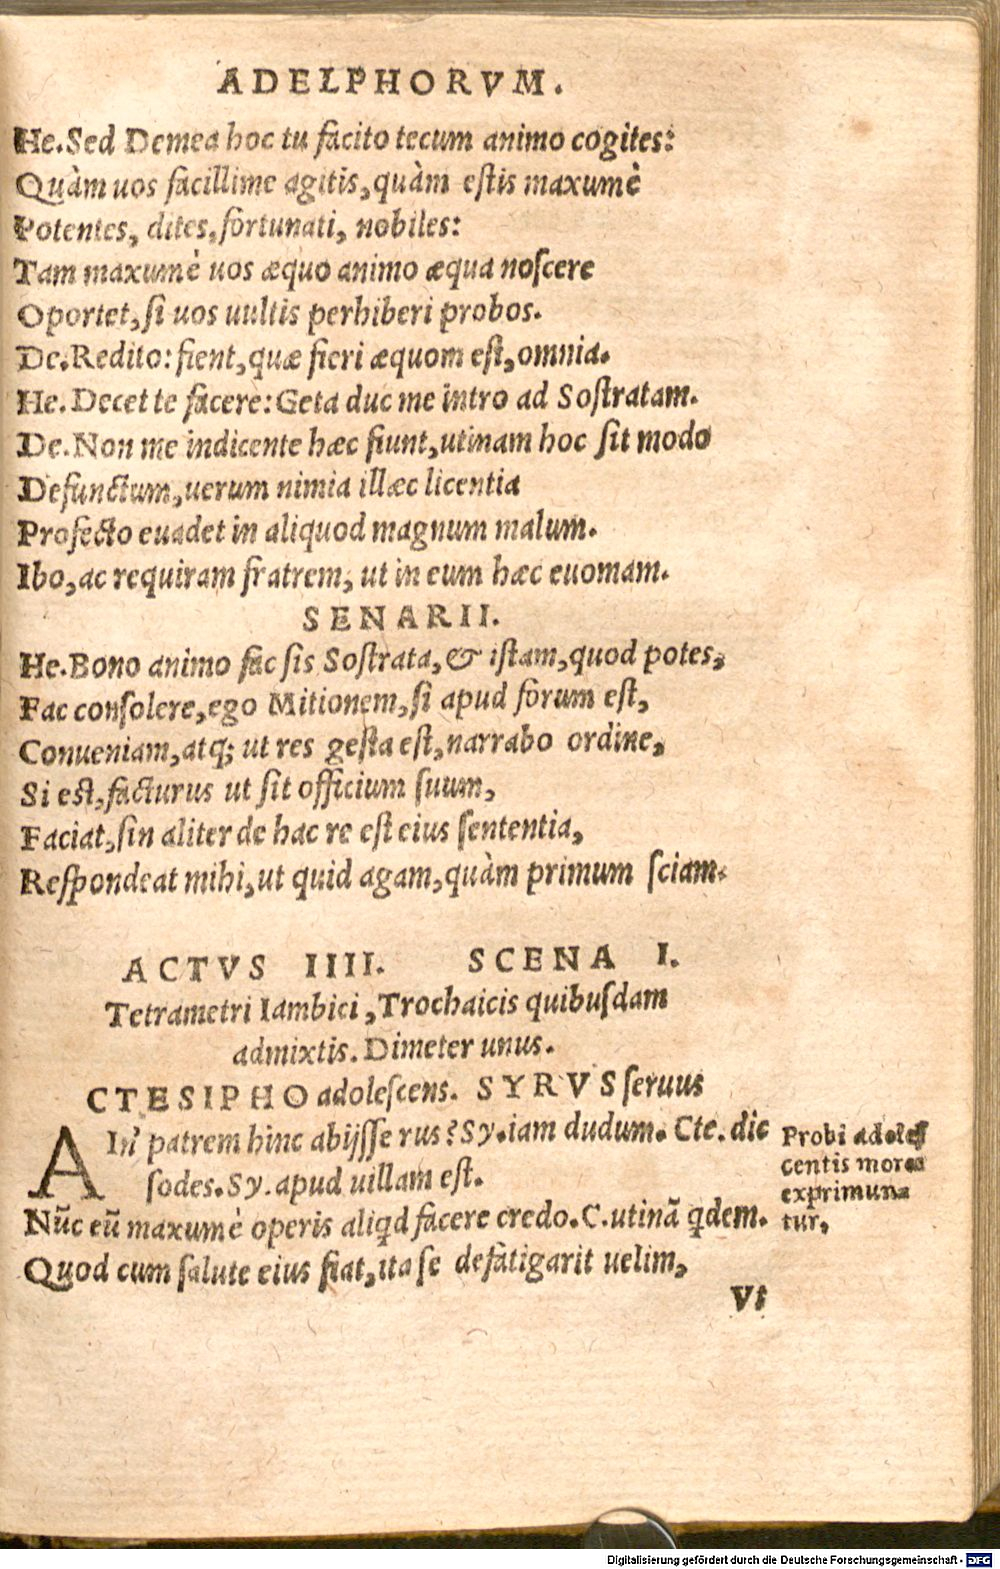 ADELPHORVM.
He. Sed Demea hoc tu facito tecum animo cogites:
Quàm uos facillime agitis, quàm estis maxumè
Potentes, dites, fortunati, nobiles:
Tam maxumè uos æquo animo æqua noscere
Oportet, si uos uultis perhiberi probos.
De. Redito: fient, quæ fieri æquom est, omnia.
He. Decet te facere: Geta duc me intro ad Sostratam.
De. Non me indicente hæc fiunt, utinam hoc sit modo
Defunctum, uerum nimia illæc licentia
Profecto euadet in aliquod magnum malum.
Ibo, ac requiram fratrem, ut in eum hæc euomam.
SENARII.
He. Bono animo fac sis Sostrata, & istam, quod potes,
Fac consolere, ego Mitionem, si apud forum est,
Conueniam, atq; ut res gesta est, narrabo ordine,
Si est, facturus ut sit officium suum,
Faciat, sin aliter de hac re est eius sententia,
Respondeat mihi, ut quid agam, quàm primum sciam.
ACTVS IIII. SCENA I.
Tetrametri Iambici, Trochaicis quibusdam
admixtis. Dimeter unus.
CTESIPHO adolescens. SYRVS seruus
AIn' patrem hinc abijsse rus? Sy. iam dudum. Cte. dic
sodes. Sy. apud uillam est.
Nūc eū maxumè operis aliqd facere credo. C. utinā qdem.
Quod cum salute eius fiat, ita se defatigarit uelim,
Vt
Probi adoles
centis mores
exprimun-
tur,
Digitalisierung gefördert durch die Deutsche Forschungsgemeinschaft - DFG